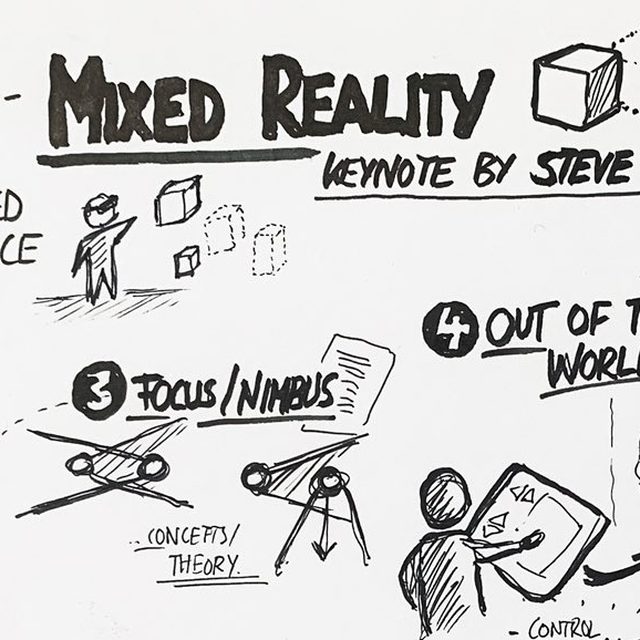 MIXED REALITY
KEYNOTE BY STEVE
ED
CE
4 OUT OF T
WORL
3 FOCUS/NIMBUS
CONCEPTS/
THEORY.
- CONTROL